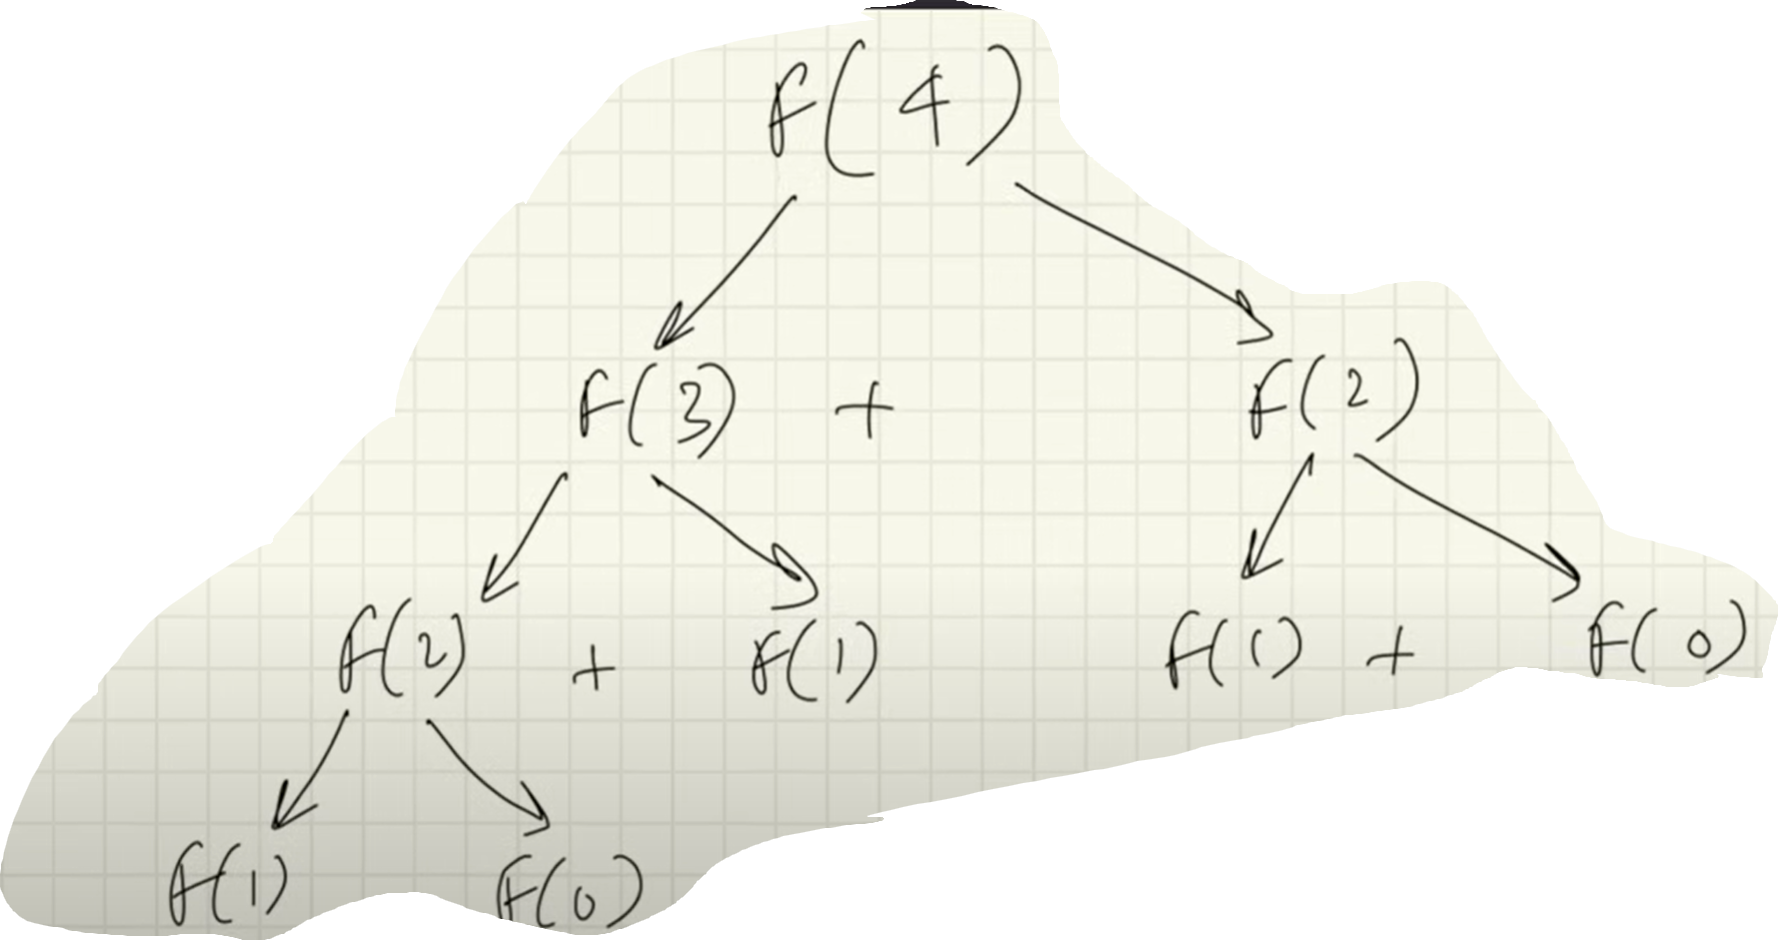 f(4)
f(3) + f(2)
f(2) + f(1) f(1) + f(0)
f(1) f(0)